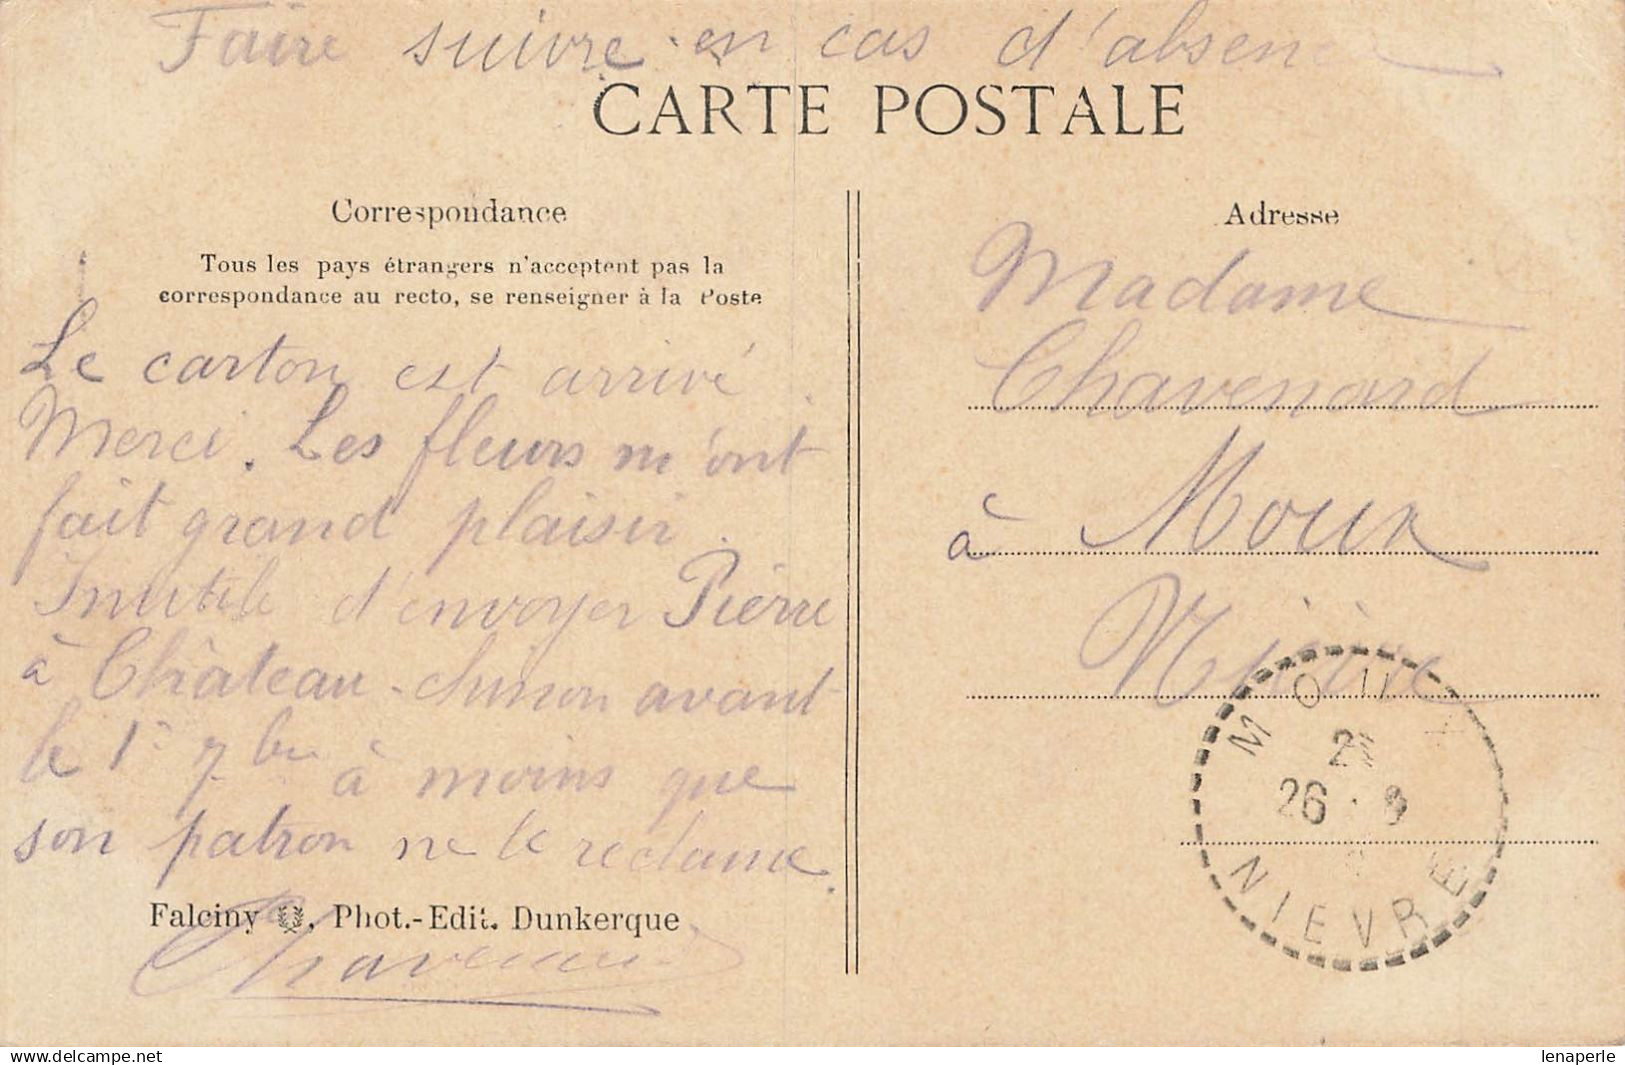 Faire suivre en cas d'absence
CARTE POSTALE
Correspondance
Tous les pays étrangers n'acceptent pas la
correspondance au recto, se renseigner à la Poste
Le carton est arrivé.
Merci. Les fleurs m'ont
fait grand plaisir.
Inutile d'envoyer Pierre
à Château-chinon avant
le 1er 7bre à moins que
son patron ne le réclame.
Falciny, Phot.-Edit. Dunkerque
Chavenard
Adresse
Madame
Chavenard
à Moux
Nièvre
MOUX
26 8
NIEVRE
www.delcampe.net
lenaperle